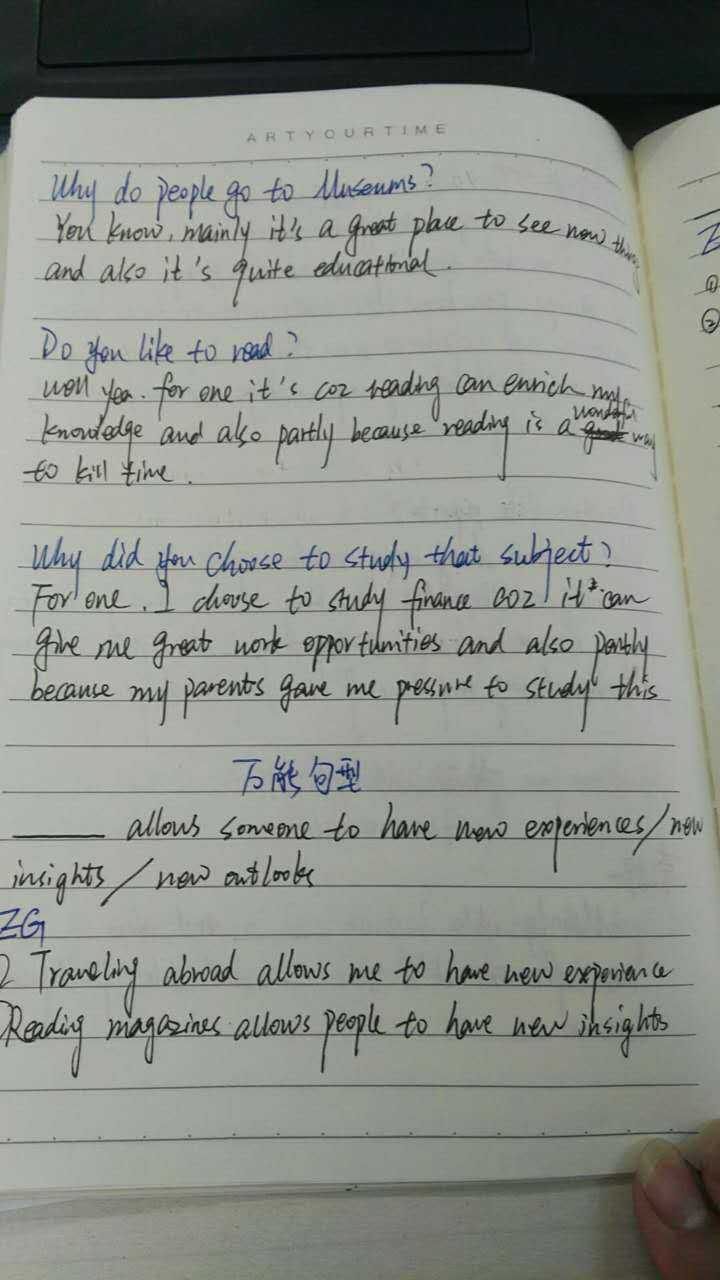 ARTYOURTIME
Why do people go to Museums?
You know, mainly it's a great place to see new things
and also it's quite educational.
Do you like to read?
well yea. for one it's coz reading can enrich my
knowledge and also partly because reading is a wonderful way
to kill time.
Why did you choose to study that subject?
For one, I choose to study finance coz it can
give me great work opportunities and also partly
because my parents gave me pressure to study this
万能句型
_____ allows someone to have new experiences/new
insights/new outlooks
ZG
Traveling abroad allows me to have new experience
Reading magazines allows people to have new insights
①
②